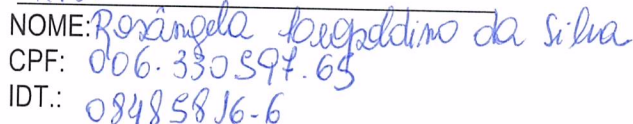 NOME: Rosângela Leopoldino da Silva
CPF: 006.330597.65
IDT.: 08485816-6